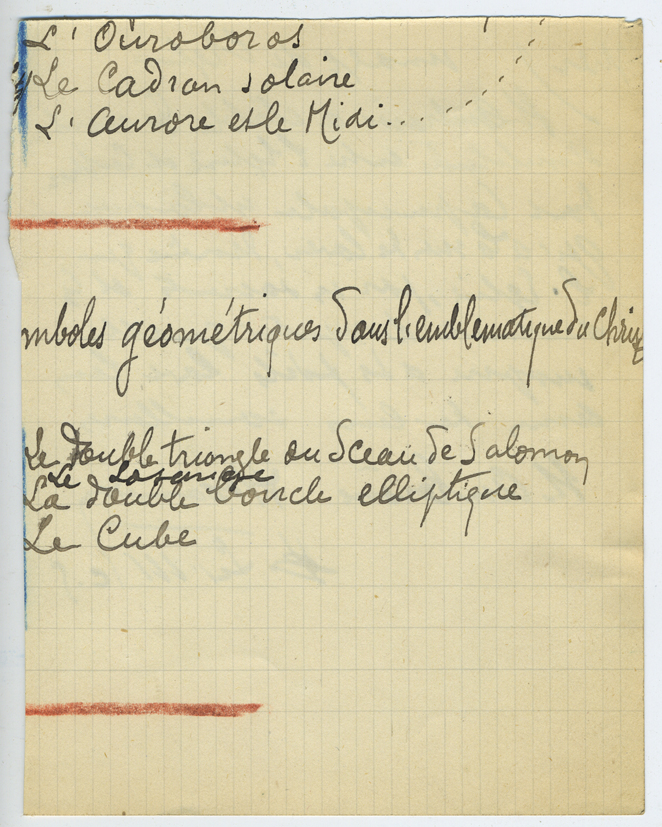 L'Ouroboros
Le Cadran solaire
L'Aurore et le Midi...
mboles géométriques dans l'emblématique du Chris
Le double triangle ou Sceau de Salomon
Le Losange
La double boucle elliptique
Le Cube